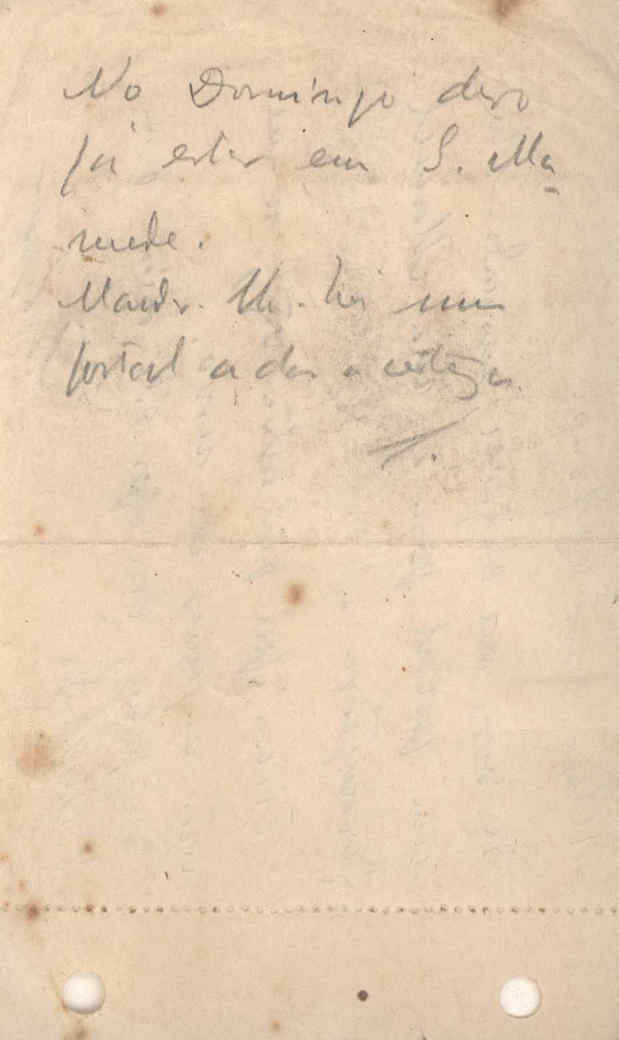 No Domingo devo
já estar em S. Ma-
mede.
Mandar-lh-hei um
postal a dar a certeza.